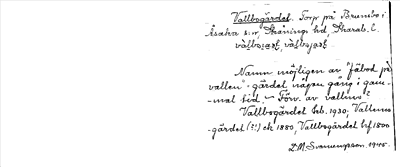 Vallbogärdet. Torp på Brunsbo i
Åsaka s:n, Skånings hd, Skarab. l.
Namn möjligen av "fäbod på
vallen" i gärdet någon gång i gam-
mal tid. – Förv. av vallmos?
Vallbogärdet bb. 1930; Vallmo-
gärdet (?!) ek 1880; Vallbogärdet hf 1800
D. M. Svennungsson. 1945.